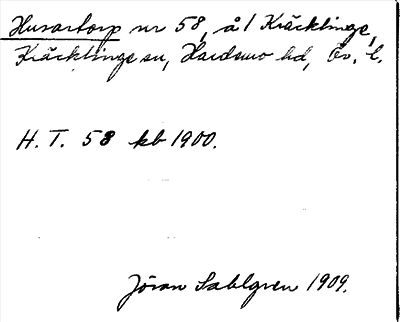 Husartorp nr 58, å 1 Kräcklinge,
Kräcklinge sn, Hardemo hd, Ör. l.
H. T. 58 kb 1900.
Jöran Sahlgren 1909.